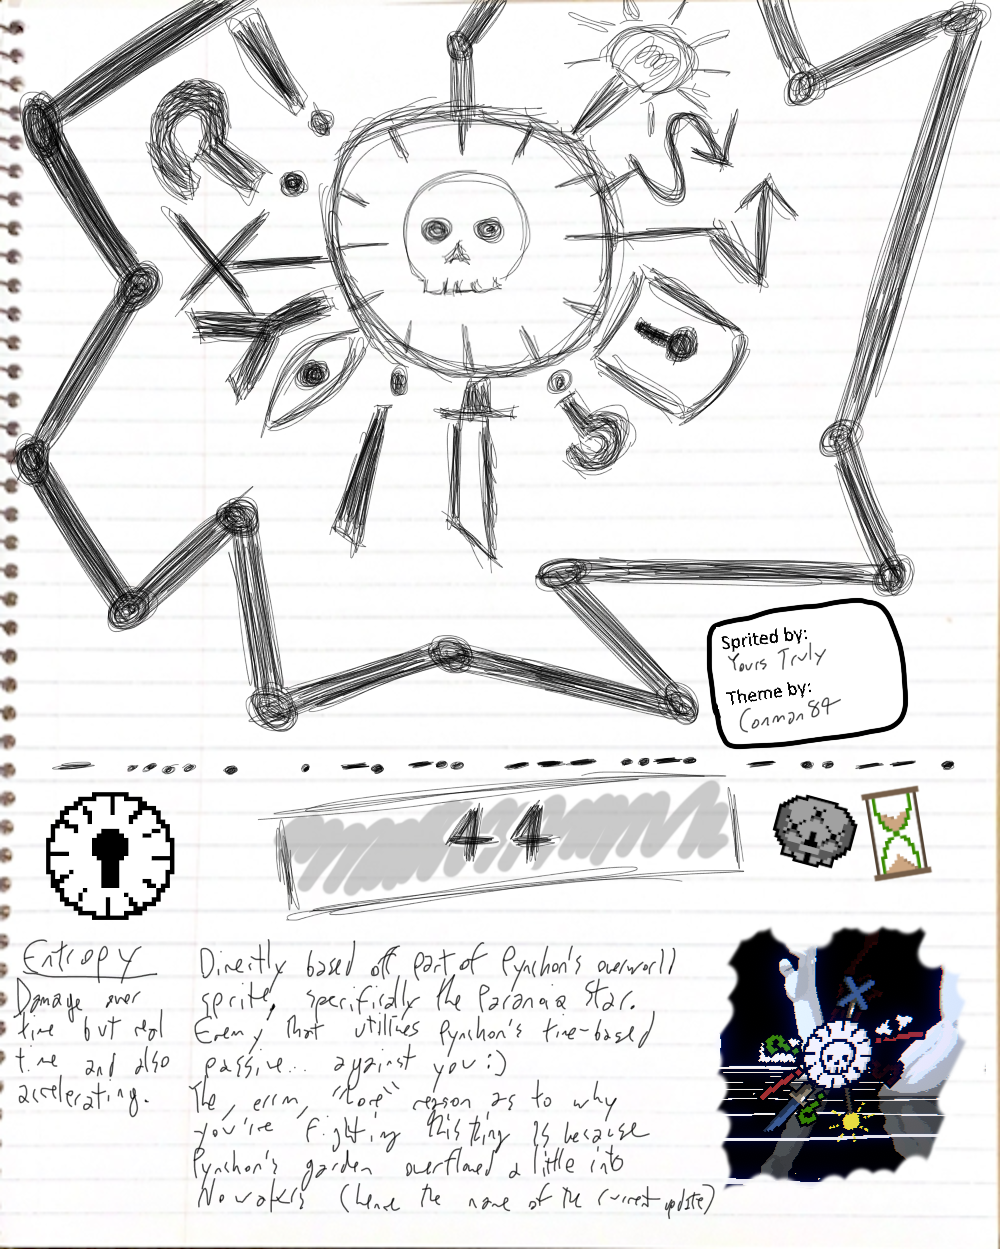 Sprited by:
Yours Truly
Theme by:
Conman84
44
Entropy
Damage over
time but real
time and also
accelerating.
Directly based off part of Pynchon's overworld
sprite, specifically the Paranoia Star.
Enemy that utilizes Pynchon's time-based
passive... against you :)
The, errm, "lore" reason as to why
you're fighting this thing is because
Pynchon's garden overflowed a little into
(hence the name of the current update)